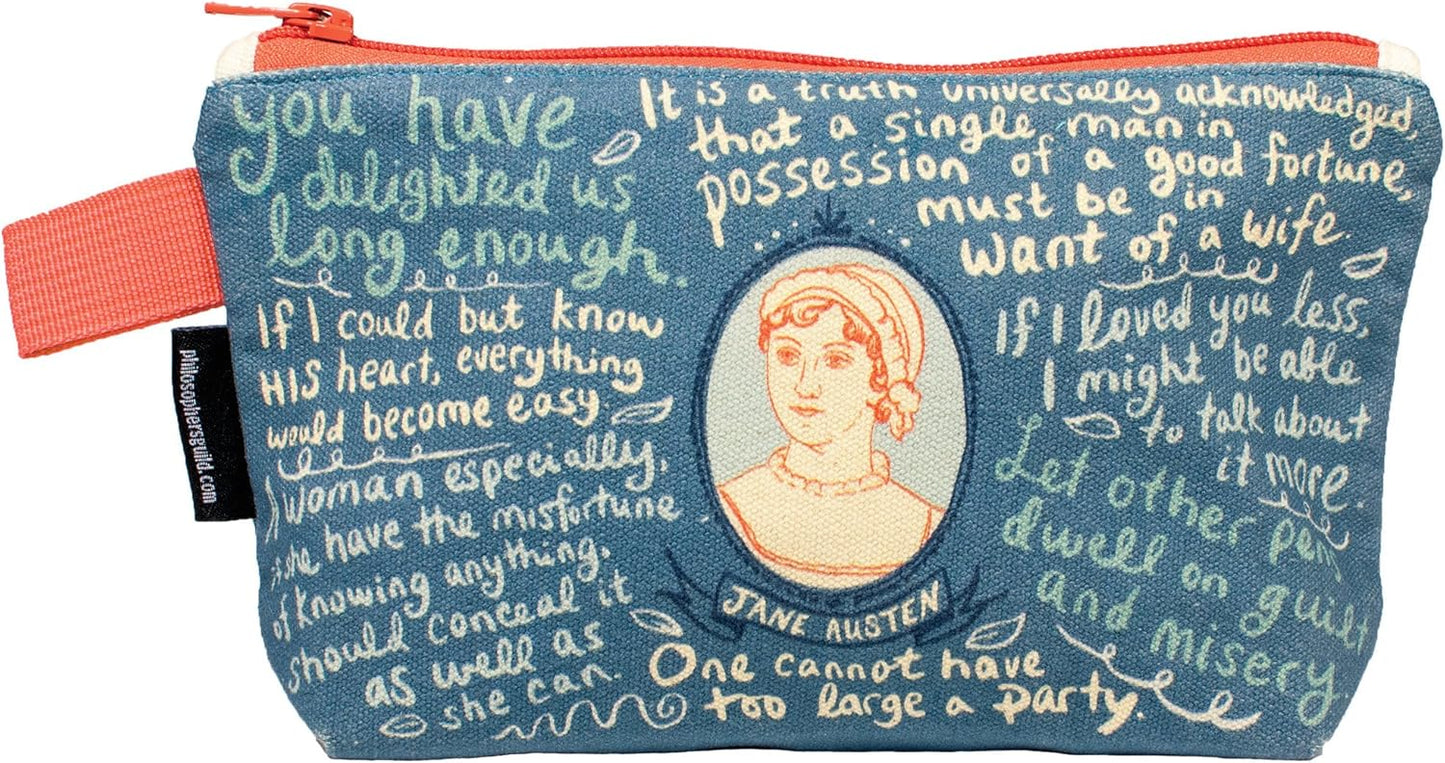 you have
delighted us
long enough.
It is a truth universally acknowledged,
that a single man in
possession of a good fortune,
must be in
want of a wife.
If I could but know
HIS heart, everything
would become easy
woman especially,
she have the misfortune
of knowing anything,
should conceal it
as well as
she can.
JANE AUSTEN
One cannot have
too large a party.
If I loved you less,
I might be able
to talk about
it more.
Let other pens
dwell on guilt
and misery.
philosophersguild.com